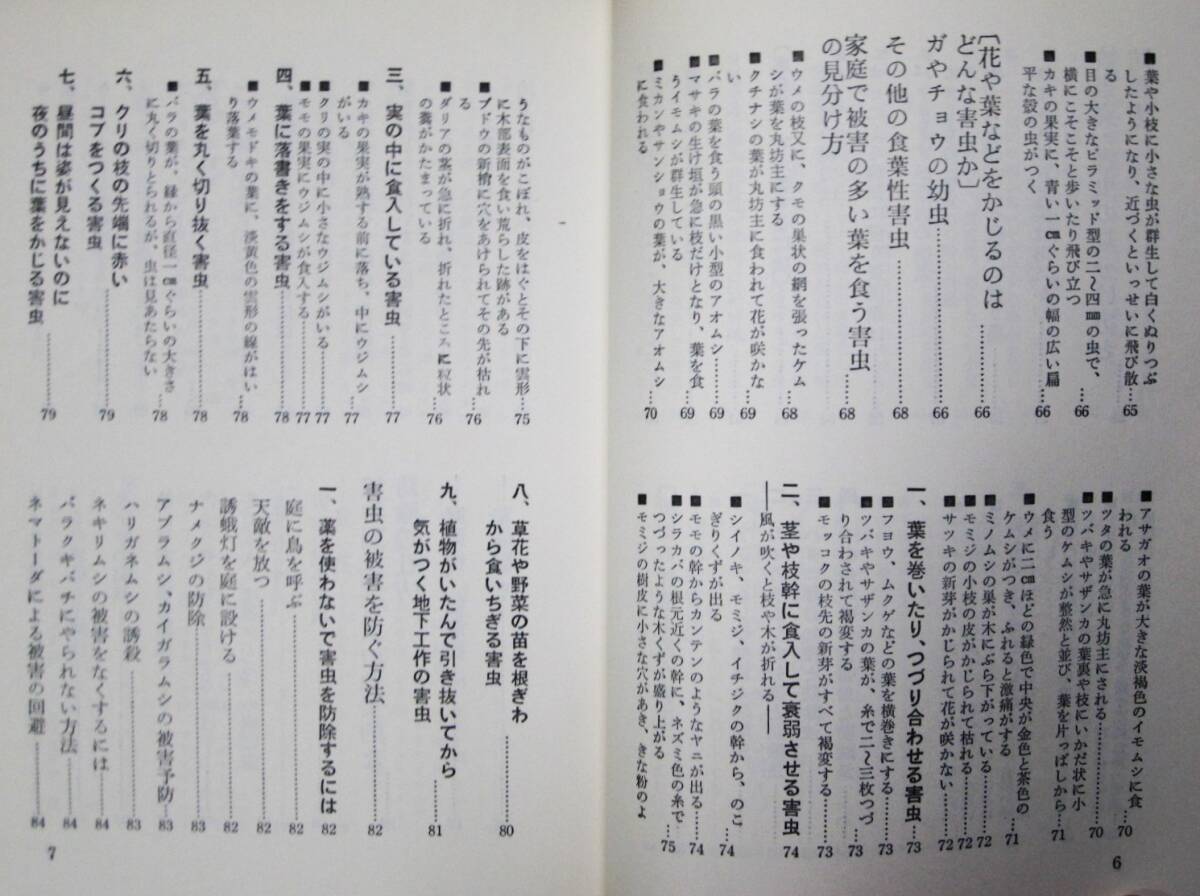 ■葉や小枝に小さな虫が群生して白くぬりつぶ
したようになり、近づくといっせいに飛び散
る……65
■目の大きなピラミッド型の二〜四㎜の虫で、
横にこそこそと歩いたり飛び立つ……66
■カキの果実に、青い一㎝ぐらいの幅の広い扁
平な殻の虫がつく……66
〔花や葉などをかじるのは
どんな害虫か〕……66
ガやチョウの幼虫……66
その他の食葉性害虫……68
家庭で被害の多い葉を食う害虫
の見分け方……68
■ウメの枝又に、クモの巣状の網を張ったケム
シが葉を丸坊主にする……68
■クチナシの葉が丸坊主に食われて花が咲かな
い……69
■バラの葉を食う頭の黒い小型のアオムシ……69
■マサキの生け垣が急に枝だけとなり、葉を食
うイモムシが群生している……69
■ミカンやサンショウの葉が、大きなアオムシ
に食われる……70
■アサガオの葉が大きな淡褐色のイモムシに食
われる……70
■ツタの葉が急に丸坊主にされる……70
■ツバキやサザンカの葉裏や枝にいかだ状に小
型のケムシが整然と並び、葉を片っぱしから
食う……71
■ウメに二㎝ほどの緑色で中央が金色と茶色の
ケムシがつき、ふれると激痛がする……71
■ミノムシの巣が木にぶら下がっている……72
■モミジの小枝の皮がかじられて枯れる……72
■サツキの新芽がかじられて花が咲かない……72
一、葉を巻いたり、つづり合わせる害虫……73
■フヨウ、ムクゲなどの葉を横巻きにする……73
■ツバキやサザンカの葉が、糸で二〜三枚つづ
り合わされて褐変する……73
■モッコクの枝先の新芽がすべて褐変する……73
二、茎や枝幹に食入して衰弱させる害虫
――風が吹くと枝や木が折れる――……74
■シイノキ、モミジ、イチジクの幹から、のこ
ぎりくずが出る……74
■モモの幹からカンテンのようなヤニが出る……74
■シラカバの根元近くの幹に、ネズミ色の糸で
つづったような木くずが盛り上がる……75
■モミジの樹皮に小さな穴があき、きな粉のよ
6
うなものがこぼれ、皮をはぐとその下に雲形
に木部表面を食い荒らした跡がある……75
■ブドウの新梢に穴をあけられてその先が枯れ
る……76
■ダリアの茎が急に折れ、折れたところに粒状
の糞がかたまっている……76
三、実の中に食入している害虫……77
■カキの果実が熟する前に落ち、中にウジムシ
がいる……77
■クリの実の中に小さなウジムシがいる……77
■モモの果実にウジムシが食入する……77
四、葉に落書きをする害虫……78
■ウメモドキの葉に、淡黄色の雲形の線がはい
り落葉する……78
五、葉を丸く切り抜く害虫……78
■バラの葉が、縁から直径一㎝ぐらいの大きさ
に丸く切りとられるが、虫は見あたらない……78
六、クリの枝の先端に赤い
コブをつくる害虫……79
七、昼間は姿が見えないのに
夜のうちに葉をかじる害虫……79
八、草花や野菜の苗を根ぎわ
から食いちぎる害虫……80
九、植物がいたんで引き抜いてから
気がつく地下工作の害虫……81
害虫の被害を防ぐ方法……82
一、薬を使わないで害虫を防除するには……82
庭に鳥を呼ぶ……82
天敵を放つ……82
誘蛾灯を庭に設ける……82
ナメクジの防除……83
アブラムシ、カイガラムシの被害予防……83
ハリガネムシの誘殺……83
ネキリムシの被害をなくするには……84
バラクキバチにやられない方法……84
ネマトーダによる被害の回避……84
7